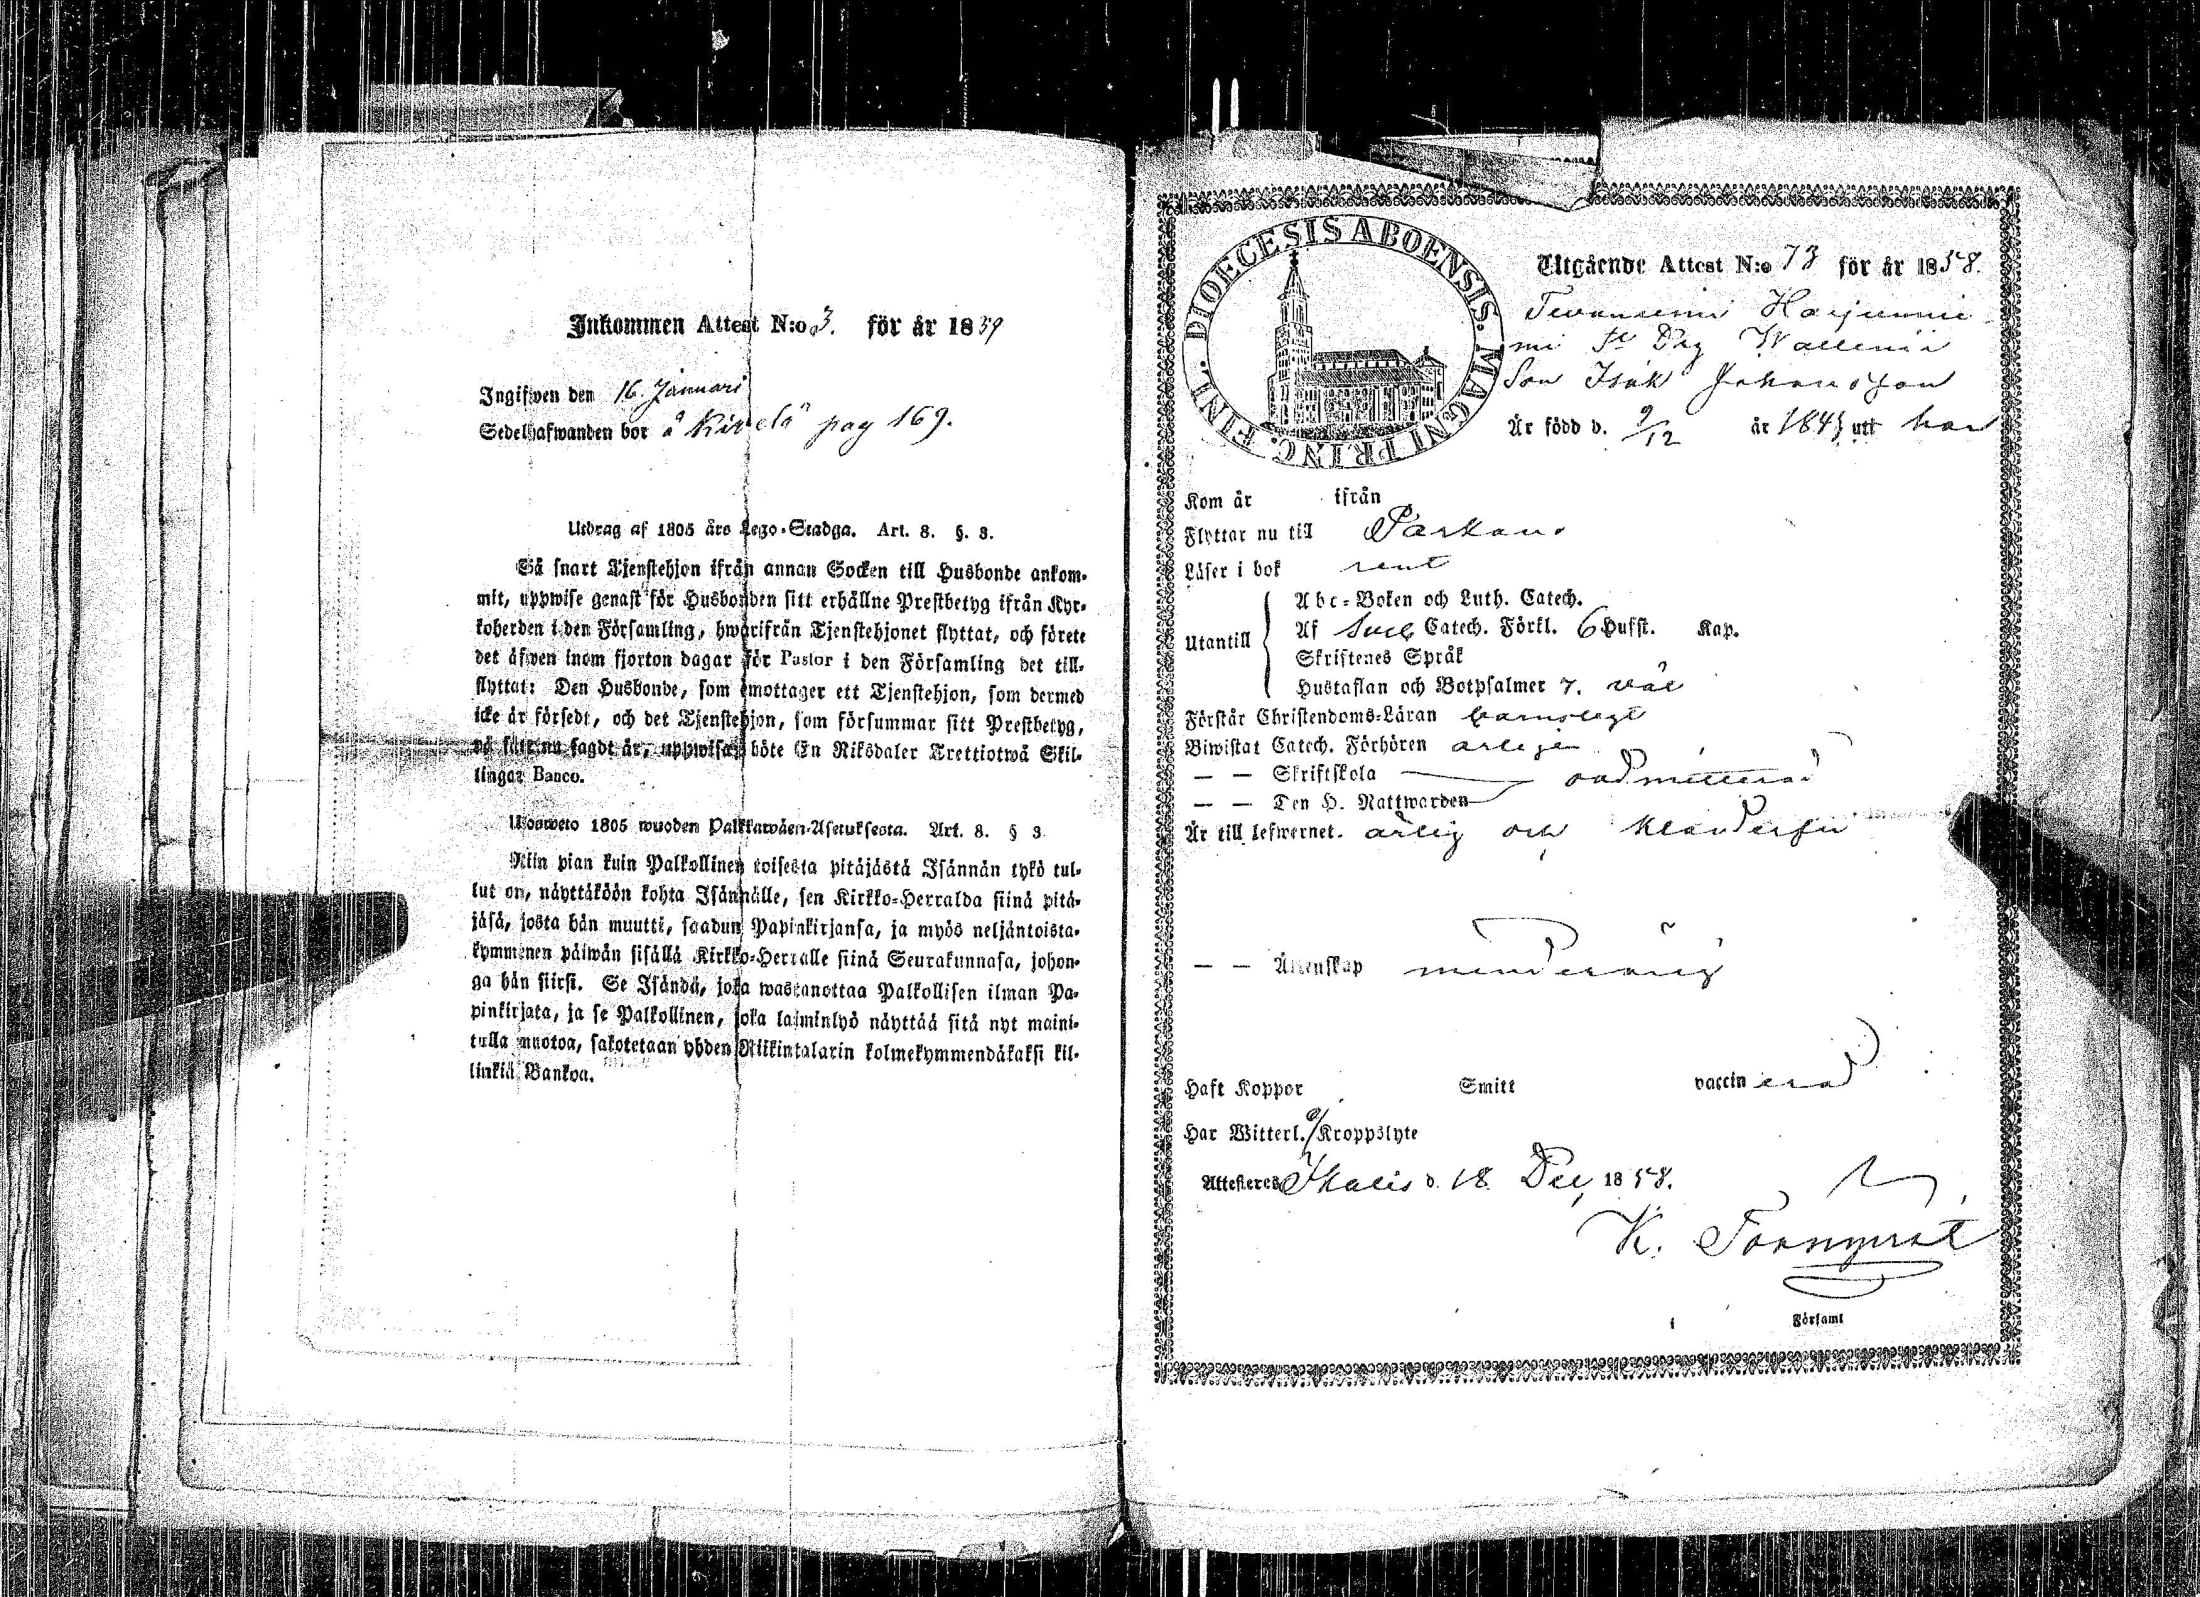 Inkommen Attest N:o 3. för år 1859
Ingifwen den 16. Januari
Sedelhafwanden bor å Kivelä pag 169.
Utdrag af 1805 års Lego-Stadga. Art. 8. §. 3.
Så snart Tjenstehjon ifrån annan Socken till Husbonde ankom-
mit, uppwise genast för Husbonden sitt erhållne Prestbetyg ifrån Kyr-
koherden i den Församling, hwarifrån Tjenstehjonet flyttat, och förete
det äfwen inom fjorton dagar för Pastor i den Församling det till-
flyttat: Den Husbonde, som emottager ett Tjenstehjon, som dermed
icke är försedt, och det Tjenstehjon, som försummar sitt Prestbetyg,
på sätt nu sagdt är, uppwisa, böte En Riksdaler Trettiotwå Skil-
lingar Banco.
Ulosweto 1805 wuoden Palkkawäen-Asetuksesta. Art. 8. § 3
Niin pian kuin Palkollinen toisesta pitäjästä Isännän tykö tul-
lut on, näyttäköön kohta Isännälle, sen Kirkko-Herralda siinä pitä-
jäsä, josta hän muutti, saadun Papinkirjansa, ja myös neljäntoista-
kymmenen päiwän sisällä Kirkko-Herralle siinä Seurakunnasa, johon-
ga hän siirsi. Se Isändä, joka wastanottaa Palkollisen ilman Pa-
pinkirjata, ja se Palkollinen, joka laiminlyö näyttää sitä nyt maini-
tulla muotoa, sakotetaan yhden Riikintalarin kolmekymmendäkaksi kil-
linkiä Bankoa.
DIOECESIS ABOENSIS. MAGNI PRINC. FINL.
Utgående Attest N:o 73 för år 1858.
Harjunnie
mi
Son Isak Johansson
Är född d. 9/12 år 1843 utt har
Kom år ifrån
Flyttar nu till Parkano
Läser i bok rent
Utantill
Abc-Boken och Luth. Catech.
Af Sveb Catech. Förkl. 6 Hufst. Kap.
Skriftenes Språk
Hustaflan och Botpsalmer 7. väl
Förstår Christendoms-Läran barnsligt
Biwistat Catech. Förhören årligen
— — Skriftskola — oadmitterad
— — Den H. Nattwarden
Är till lefwernet. ärlig och klanderfri
— — Äktenskap minderårig
Haft Koppor Smitt vaccinerad
Har Witterl. Kroppslyte
Attesteres Ikalis d. 18. Dec. 1858.
K. Törnqvist
Församl